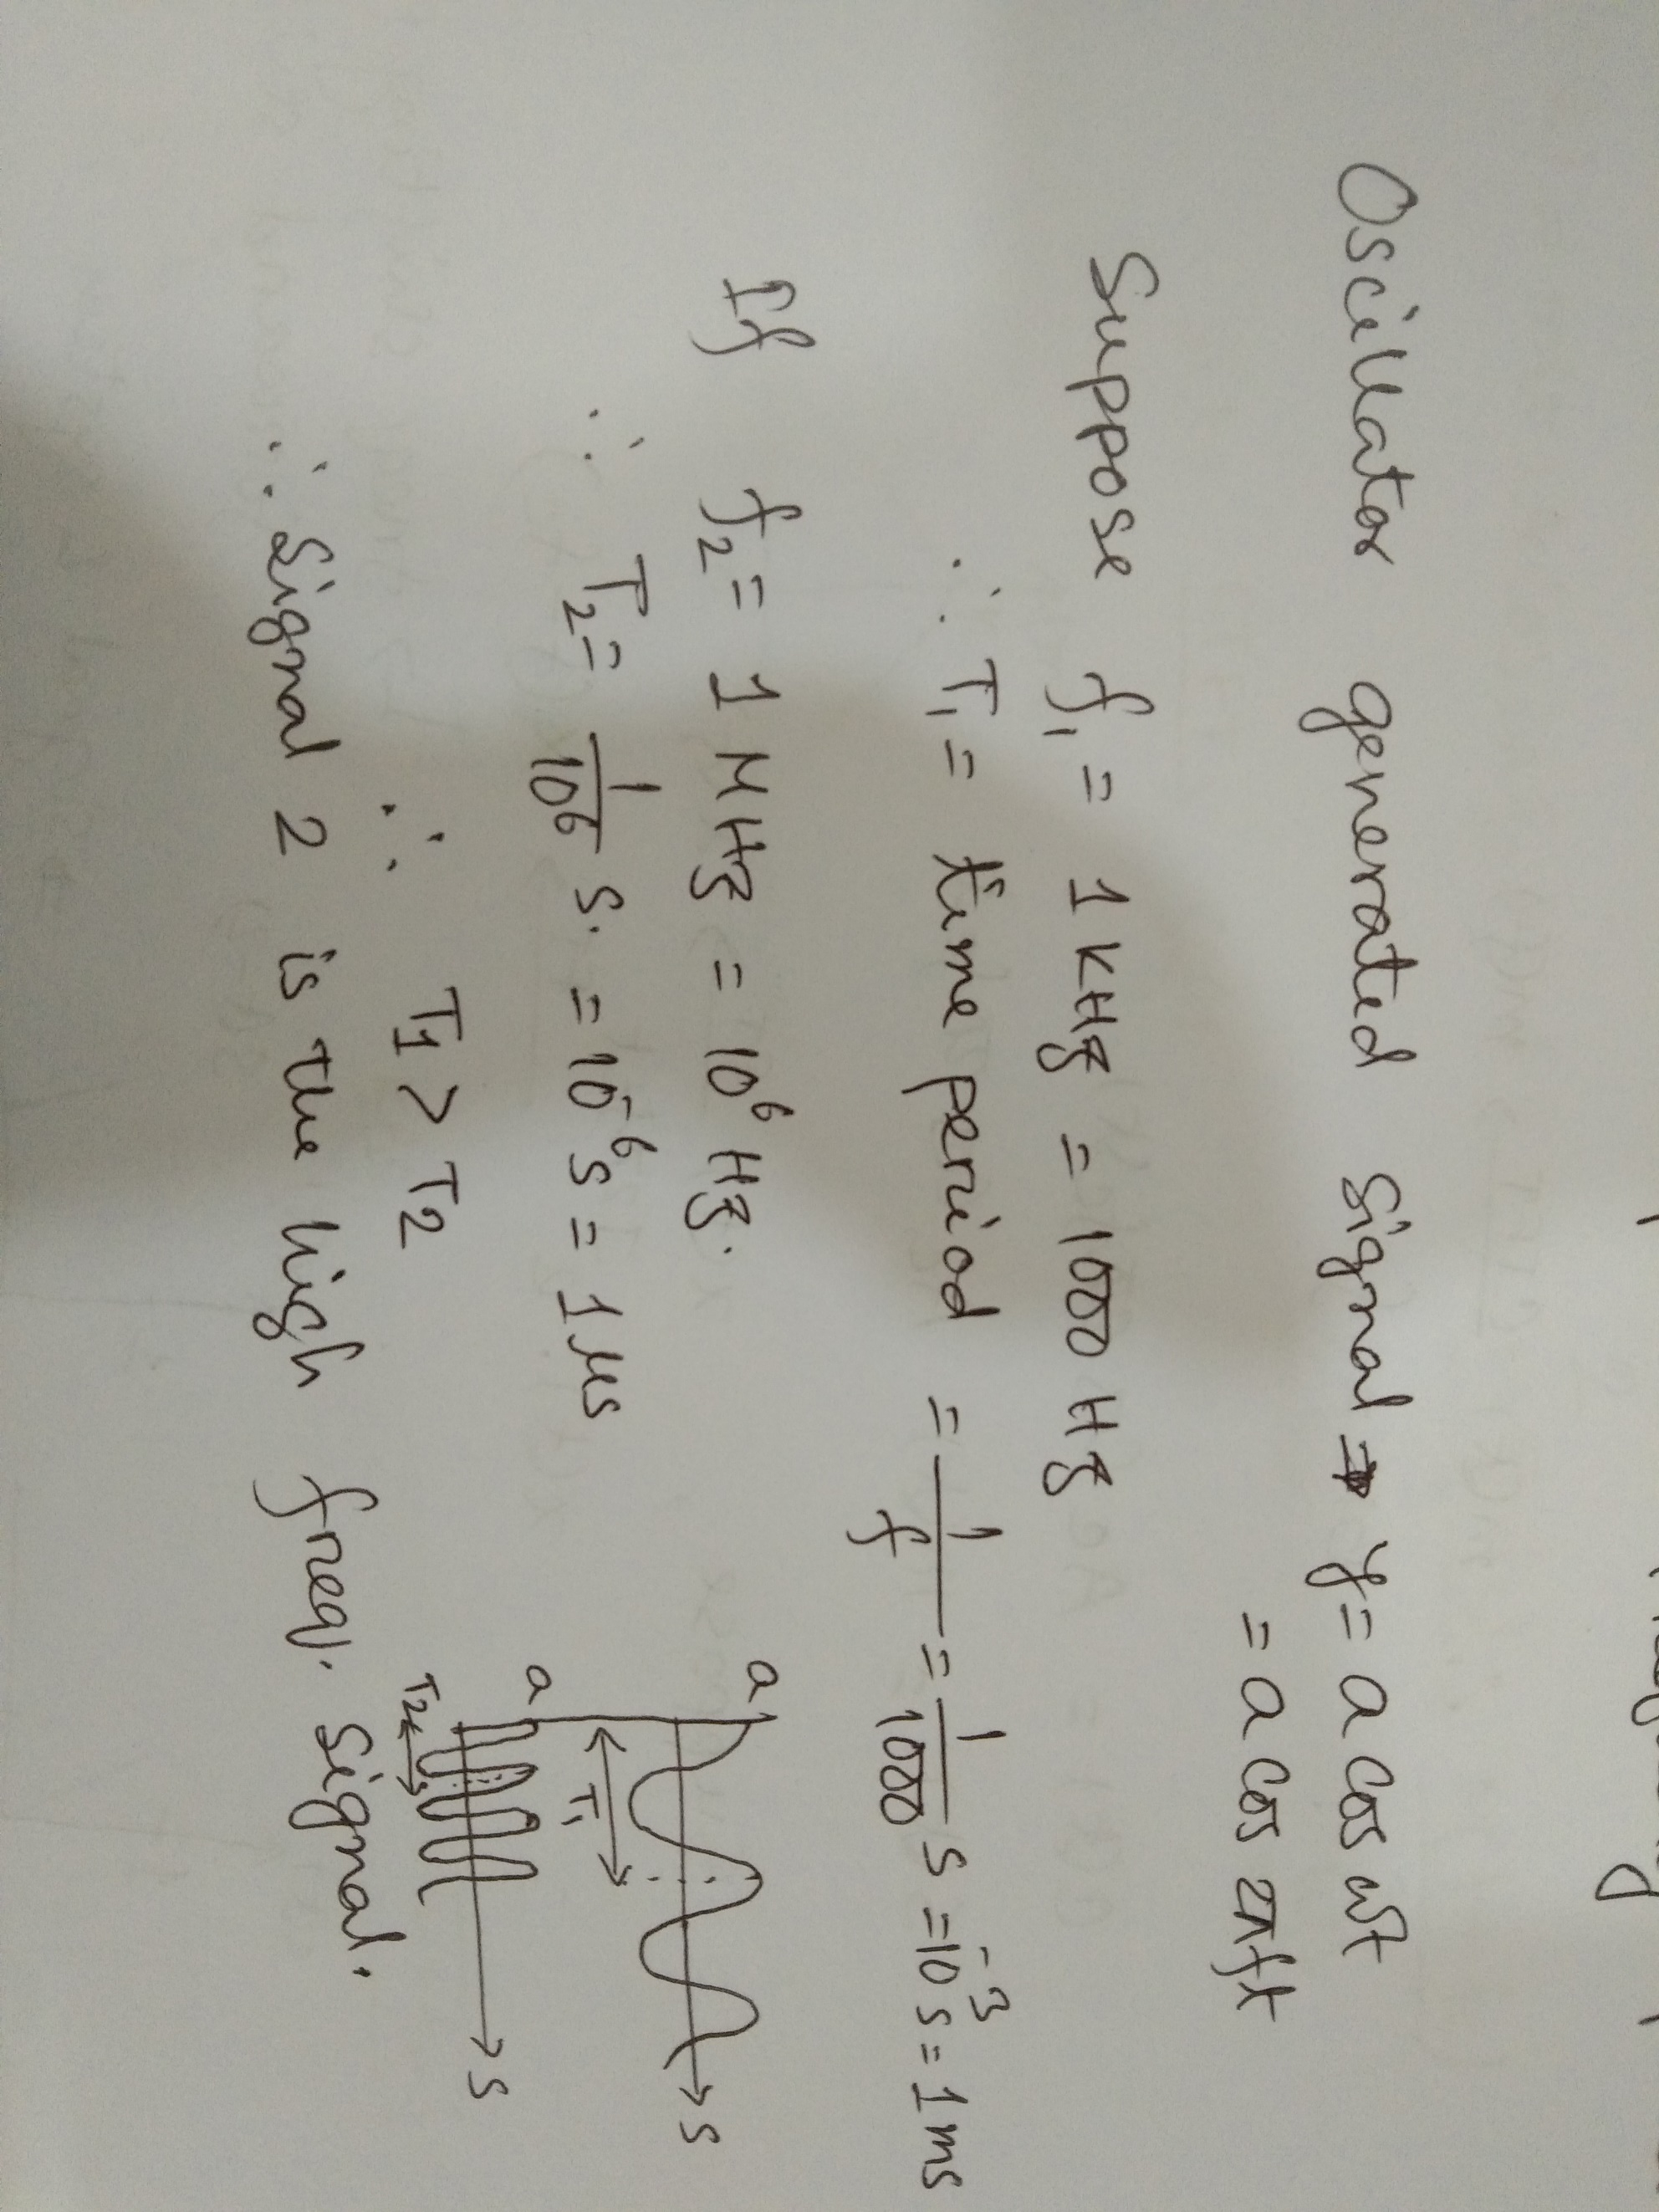 Oscillator generated signal → y = a cos ωt
= a cos 2πft
Suppose f₁ = 1 KHz = 1000 Hz
∴ T₁ = time period = 1/f = 1/1000 s = 10⁻³ s = 1 ms
If f₂ = 1 MHz = 10⁶ Hz.
∴ T₂ = 1/10⁶ s. = 10⁻⁶ s = 1 μs
∴ T₁ > T₂
∴ Signal 2 is the high freq. signal.
a
s
T₁
a
s
T₂